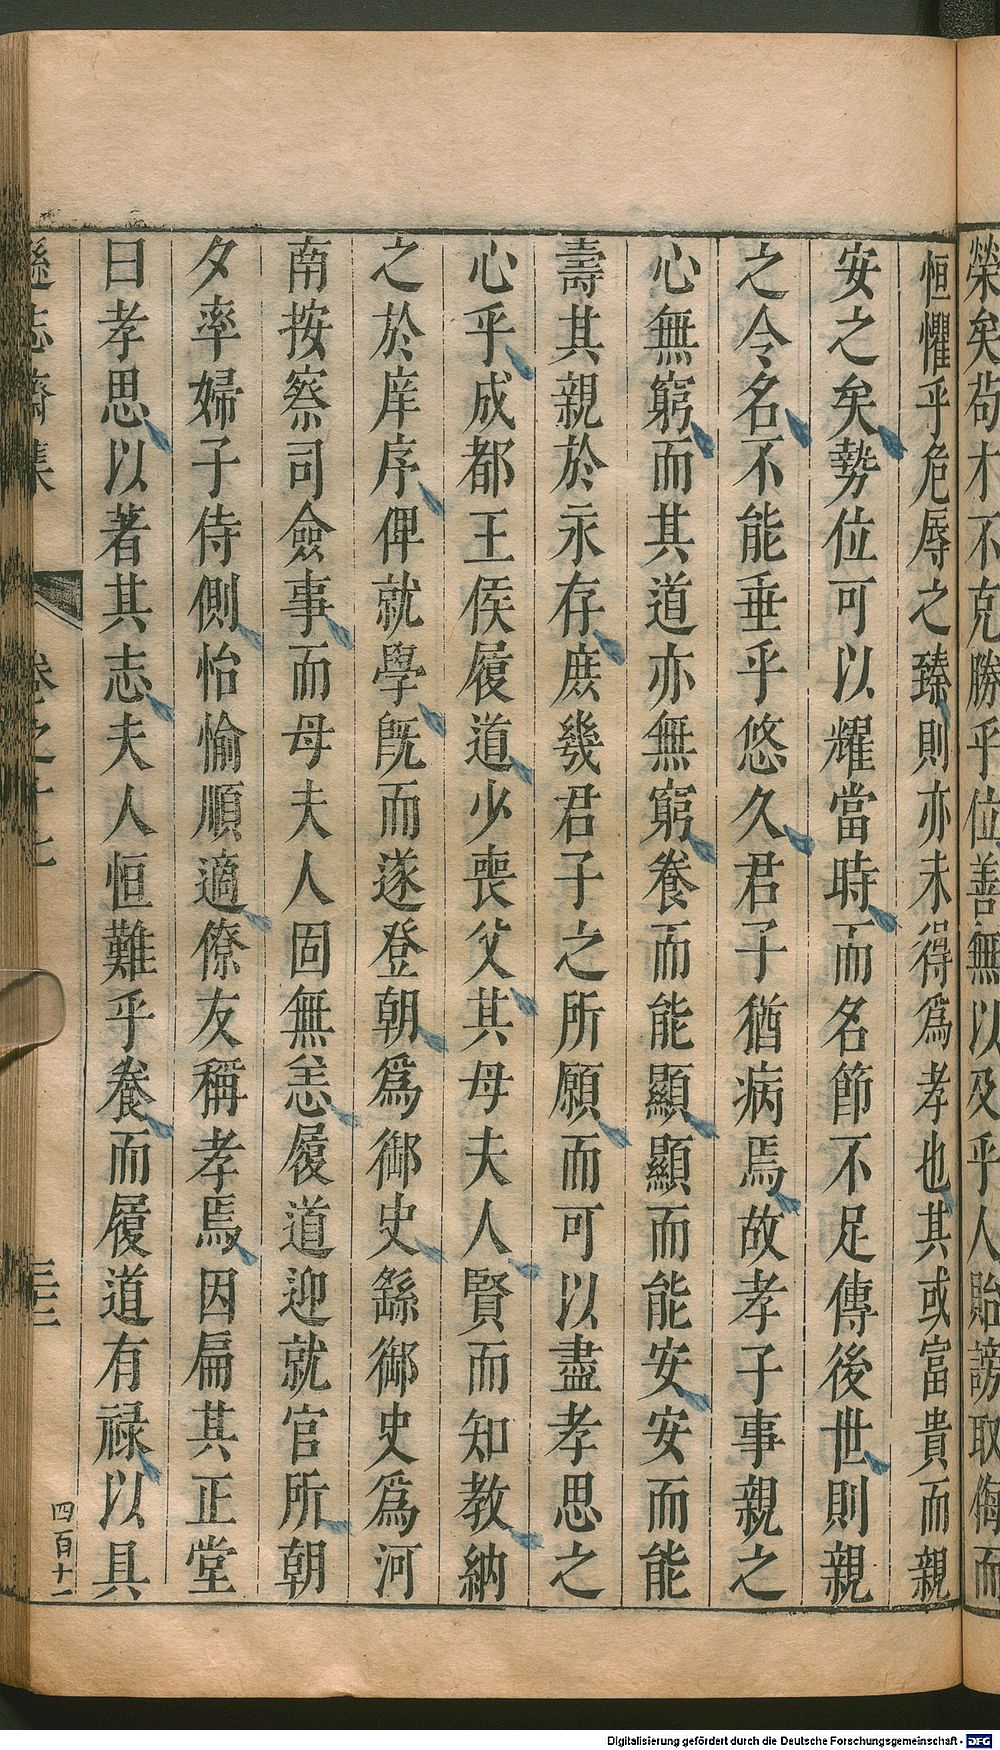 榮矣苟才不克勝乎位善無以及乎人貽謗取侮而
恒懼乎危辱之臻則亦未得爲孝也其或富貴而親
安之矣勢位可以耀當時而名節不足傳後世則親
之令名不能垂乎悠久君子猶病焉故孝子事親之
心無窮而其道亦無窮養而能顯顯而能安安而能
壽其親於永存庶幾君子之所願而可以盡孝思之
心乎成都王俟履道少喪父其母夫人賢而知教納
之於庠序俾就學旣而遂登朝爲御史繇御史爲河
南按察司僉事而母夫人固無恙履道迎就官所朝
夕率婦子侍側怡愉順適僚友稱孝焉因扁其正堂
曰孝思以著其志夫人恒難乎養而履道有祿以具
遜志齋集
卷之十七
三十二
四百十一
Digitalisierung gefördert durch die Deutsche Forschungsgemeinschaft - DFG